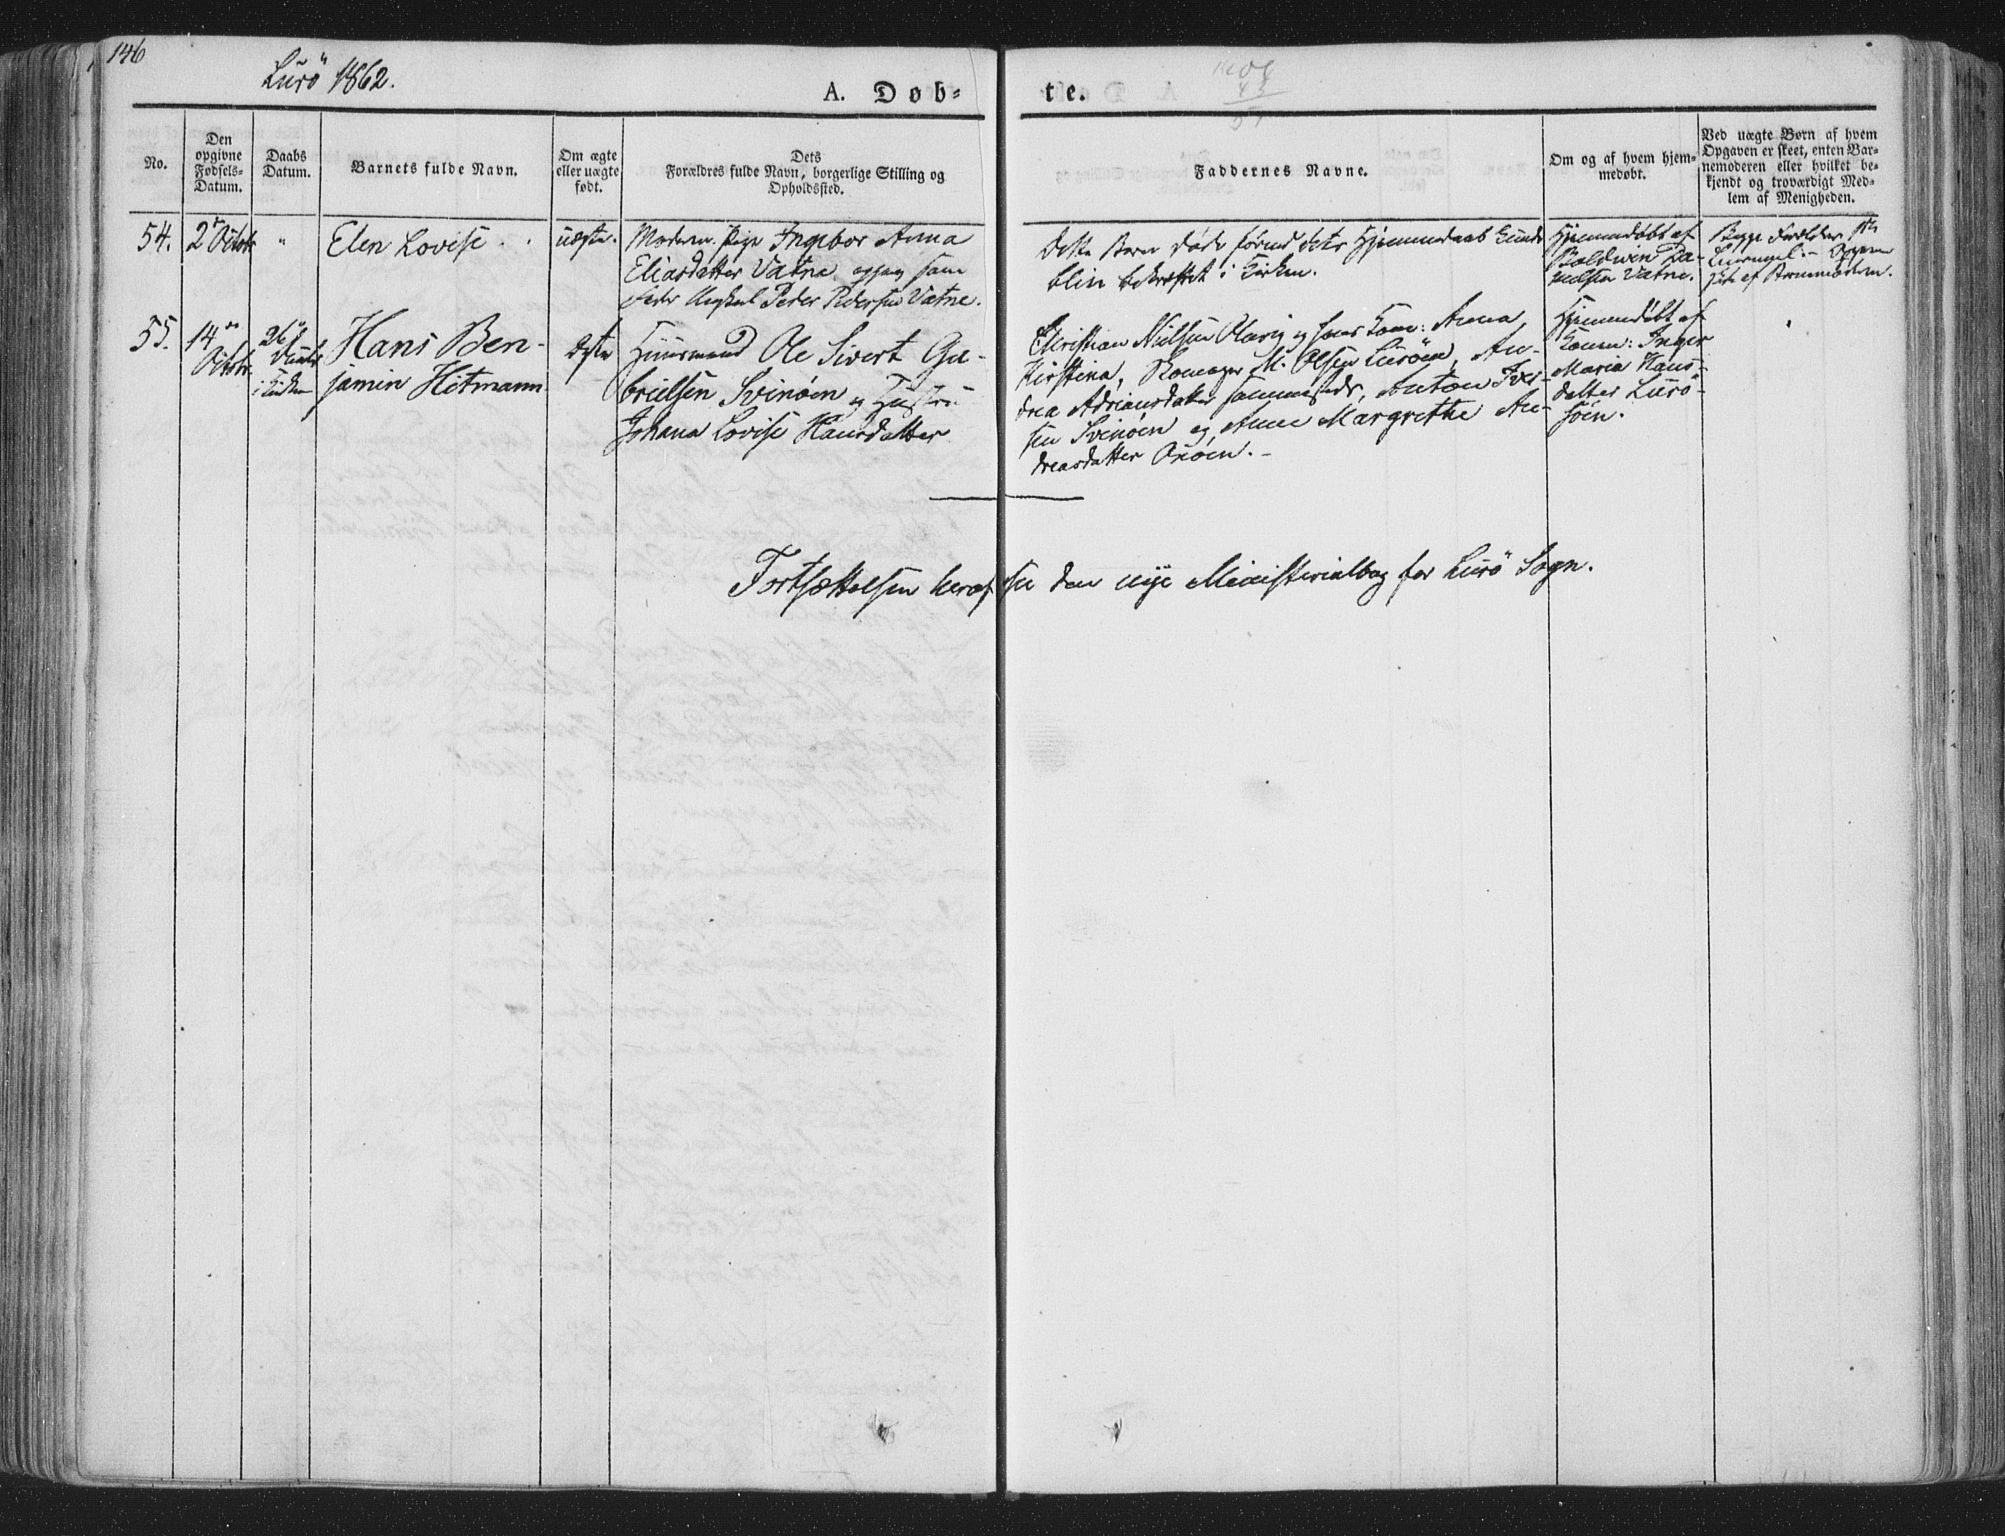 146
Lurö 1862.
A. Døb-
te.
No.
Den opgivne Fødsels-Datum.
Daabs Datum.
Barnets fulde Navn.
Om ægte eller uægte født.
Dets Forældres fulde Navn, borgerlige Stilling og Opholdssted.
Faddernes Navne.
Om og af hvem hjem-
medøbt.
Ved uægte Børn af hvem
Opgaven er skeet, enten Bar-
nemoderen eller hvilket be-
kjendt og troværdigt Med-
lem af Menigheden.
54.
2 Octobr
"
Elen Lovise
uægte.
Moderen: Pige Ingebor Anna
Eliasdatter Vatne, opgav som
Fader Ungkarl Peder Pedersen Vatne.
Dette Barn døde førend dets Hjemmedaab kunde
blive bekræftet i Kirken.
Hjemmedøbt af
Baldwin Da-
nielsen Vatne.
Begge Forældre
af Barnmoderen.
55.
14 Octobr
26
i Kirken
Hans Ben-
jamin Hitmann
ægte
Huusmand Ole Sivert Ga-
brielsen Svinöen og Hustru
Johana Lovise Hansdatter
Christian Nielsen og hans Kone: Anna
Kirstina, M. Olsen Luröen, An-
drea Adriansdatter sammesteds, Anton Iver-
sen Svinöen og Anne Margrethe An-
dreasdatter Onöen.
Hjemmedøbt af
Konen: Inger
Maria Hans-
datter Lurö-
söen.
Fortsættelsen heraf se den nye Ministerialbog for Lurö Sogn.